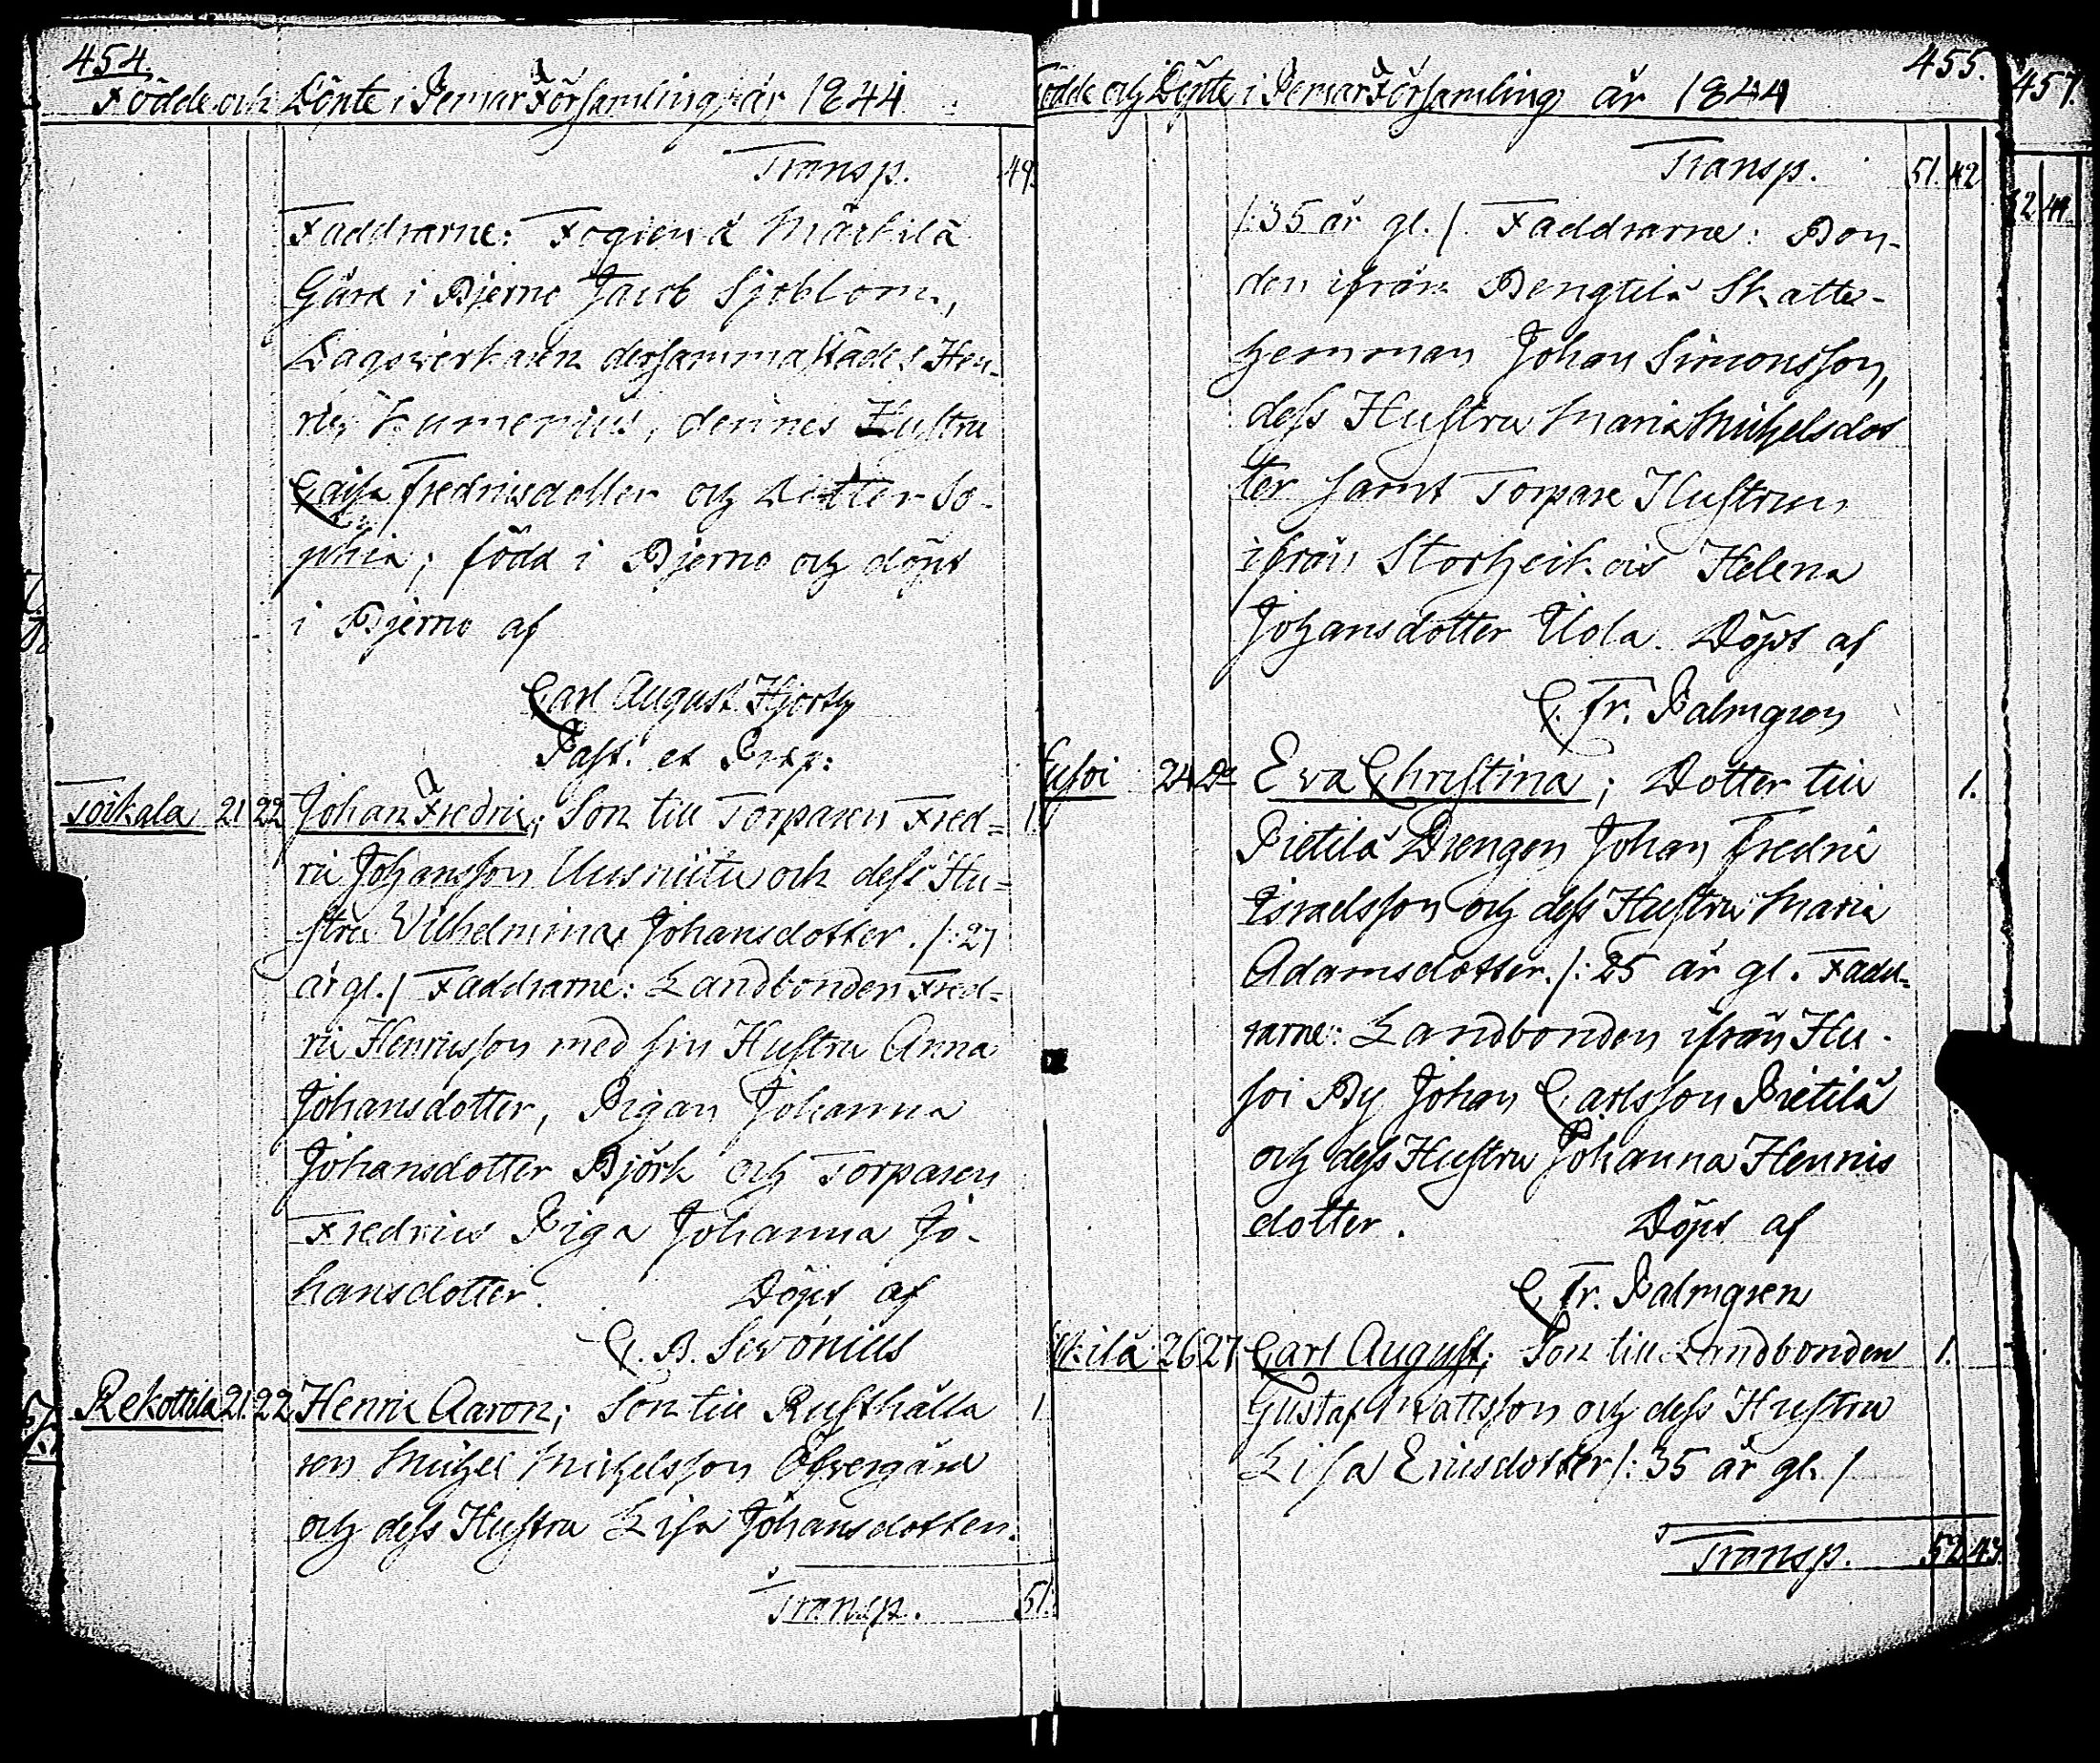 454.
Födde och Döpte i Pemar Församling år 1844
Transp. 49.
Faddrarne: Fogden å Märkilä
Gård i Bjerno Jacob Sjöblom,
Dagsverkaren dersammastädes Hen-
ric Kumenius, dennes Hustru
Caisa Fredricsdotter och Dotter So-
phia; född i Bjerno och döpt
i Bjerno af
Carl August Hjorth
Past. et Præp:
Toikkala 21 22 Johan Fredric; Son till Torparen Fred= 1.
ric Johansson Uusniitu och dess Hu=
stru Vilhelmina Johansdotter. /: 27
år gl. / Faddrarne: Landbonden Fred=
ric Henricsson med sin Hustru Anna
Johansdotter, Pigan Johanna
Johansdotter Björk och Torparen
Fredrics Piga Johanna Jo-
hansdotter. Döpt af
C. B. Sevonius
Rekottila 21. 22 Henric Aaron; Son till Rusthålla 1
ren Michel Michelsson Öfvergård
och dess Hustru Lisa Johansdotter.
Transp. 51.
455.
Födde och Döpte i Pemar Församling år 1844
Transp. 51. 42
/: 35 år gl. /. Faddrarne: Bon-
den ifrån Bengtilä Skatte-
hemman Johan Simonsson,
dess Hustru Maria Michelsdot
ter samt Torpare Hustrun
ifrån Storheikois Helena
Johansdotter Uola. Döpt af
C. Fr. Palmgren
Husoi 24 Do Eva Christina; Dotter till 1.
Pietilä Drengen Johan Fredric
Israelsson och dess Hustru Maria
Adamsdotter. /: 25 år gl. Fadd-
rarne: Landbonden ifrån Hu-
soi By Johan Carlsson Pietilä
och dess Hustru Johanna Henrics
dotter. Döpt af
C. Fr. Palmgren
26 27 Carl August; Son till Landbonden 1.
Gustaf Mattsson och dess Hustru
Lisa Ericsdotter /: 35 år gl. /
Transp. 52. 43.
457.